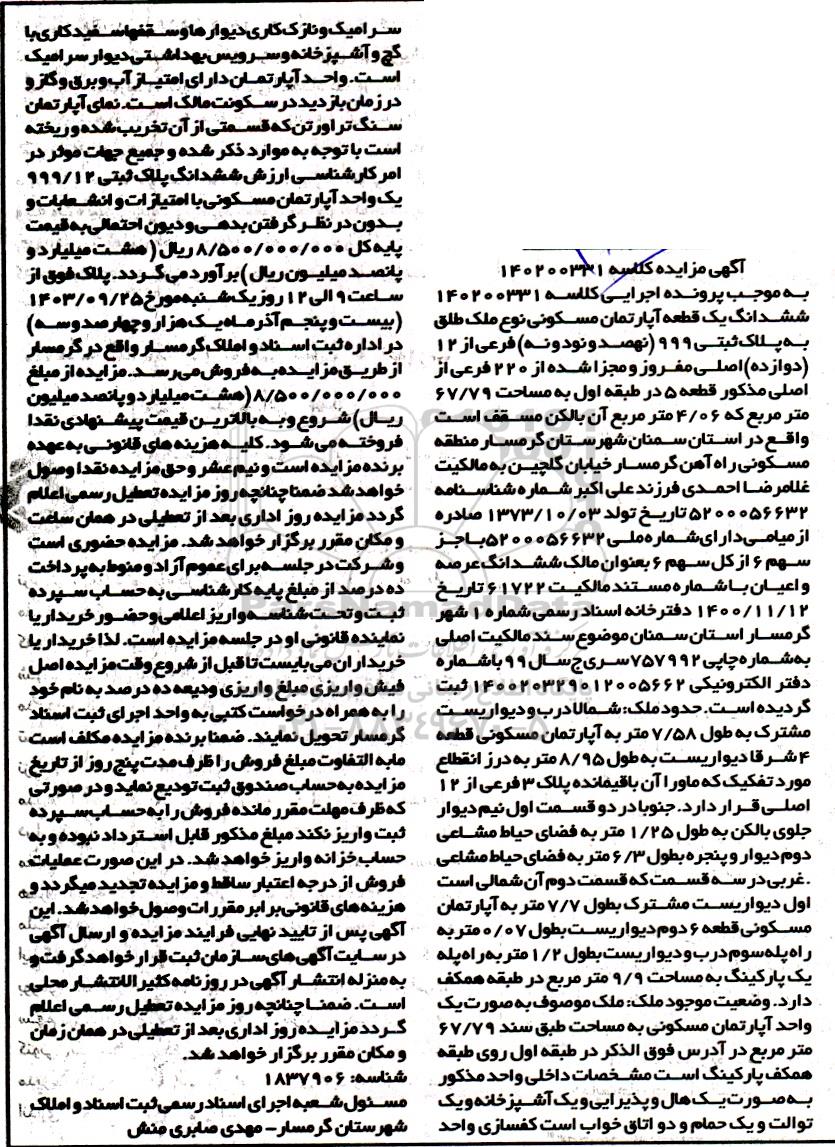 آگهی مزایده کلاسه ۱۴۰۲۰۰۳۳۱
به موجب پرونده اجرایی کلاسه ۱۴۰۲۰۰۳۳۱
ششدانگ یک قطعه آپارتمان مسکونی نوع ملک طلق
به پلاک ثبتی ۹۹۹ (نهصد و نود و نه) فرعی از ۱۲
(دوازده) اصلی مفروز و مجزا شده از ۲۲۰ فرعی از
اصلی مذکور قطعه ۵ در طبقه اول به مساحت ۶۷/۷۹
متر مربع که ۴/۰۶ متر مربع آن بالکن مسقف است
واقع در استان سمنان شهرستان گرمسار منطقه
مسکونی راه آهن گرمسار خیابان گلچین به مالکیت
غلامرضا احمدی فرزند علی اکبر شماره شناسنامه
۵۲۰۰۰۵۶۶۳۲ تاریخ تولد ۱۳۷۳/۱۰/۰۳ صادره
از میامی دارای شماره ملی ۵۲۰۰۰۵۶۶۳۲ با جز
سهم ۶ از کل سهم ۶ بعنوان مالک ششدانگ عرصه
و اعیان با شماره مستند مالکیت ۶۱۷۲۲ تاریخ
۱۴۰۰/۱۱/۱۲ دفترخانه اسناد رسمی شماره ۱ شهر
گرمسار استان سمنان موضوع سند مالکیت اصلی
به شماره چاپی ۷۵۷۹۹۲ سری ج سال ۹۹ با شماره
دفتر الکترونیکی ۱۴۰۰۲۰۳۲۹۰۱۲۰۰۵۶۶۲ ثبت
گردیده است. حدود ملک: شمالا درب و دیواریست
مشترک به طول ۷/۵۸ متر به آپارتمان مسکونی قطعه
۴ شرقا دیواریست به طول ۸/۹۵ متر به درز انقطاع
مورد تفکیک که ماورا آن باقیمانده پلاک ۳ فرعی از ۱۲
اصلی قرار دارد. جنوبا در دو قسمت اول نیم دیوار
جلوی بالکن به طول ۱/۲۵ متر به فضای حیاط مشاعی
دوم دیوار و پنجره بطول ۶/۳ متر به فضای حیاط مشاعی
.غربی در سه قسمت که قسمت دوم آن شمالی است
اول دیواریست مشترک بطول ۷/۷ متر به آپارتمان
مسکونی قطعه ۶ دوم دیواریست بطول ۰/۰۷ متر به
راه پله سوم درب و دیواریست بطول ۱/۲ متر به راه پله
یک پارکینگ به مساحت ۹/۹ متر مربع در طبقه همکف
دارد. وضعیت موجود ملک: ملک موصوف به صورت یک
واحد آپارتمان مسکونی به مساحت طبق سند ۶۷/۷۹
متر مربع در آدرس فوق الذکر در طبقه اول روی طبقه
همکف پارکینگ است مشخصات داخلی واحد مذکور
به صورت یک هال و پذیرایی و یک آشپزخانه و یک
توالت و یک حمام و دو اتاق خواب است کفسازی واحد
سرامیک و نازک کاری دیوارها و سقفها سفیدکاری با
گچ و آشپزخانه و سرویس بهداشتی دیوار سرامیک
است. واحد آپارتمان دارای امتیاز آب و برق و گاز و
در زمان بازدید در سکونت مالک است. نمای آپارتمان
سنگ تراورتن که قسمتی از آن تخریب شده و ریخته
است با توجه به موارد ذکر شده و جمیع جهات موثر در
امر کارشناسی ارزش ششدانگ پلاک ثبتی ۹۹۹/۱۲
یک واحد آپارتمان مسکونی با امتیازات و انشعابات و
بدون در نظر گرفتن بدهی و دیون احتمالی به قیمت
پایه کل ۸/۵۰۰/۰۰۰/۰۰۰ ریال (هشت میلیارد و
پانصد میلیون ریال) برآورد می گردد. پلاک فوق از
ساعت ۹ الی ۱۲ روز یک شنبه مورخ ۱۴۰۳/۰۹/۲۵
(بیست و پنجم آذر ماه یک هزار و چهارصد و سه)
در اداره ثبت اسناد و املاک گرمسار واقع در گرمسار
از طریق مزایده به فروش می رسد. مزایده از مبلغ
۸/۵۰۰/۰۰۰/۰۰۰ (هشت میلیارد و پانصد میلیون
ریال) شروع و به بالاترین قیمت پیشنهادی نقدا
فروخته می شود. کلیه هزینه های قانونی به عهده
برنده مزایده است و نیم عشر و حق مزایده نقدا وصول
خواهد شد ضمنا چنانچه روز مزایده تعطیل رسمی اعلام
گردد مزایده روز اداری بعد از تعطیلی در همان ساعت
و مکان مقرر برگزار خواهد شد. مزایده حضوری است
و شرکت در جلسه برای عموم آزاد و منوط به پرداخت
ده درصد از مبلغ پایه کارشناسی به حساب سپرده
ثبت و تحت شناسه واریز اعلامی و حضور خریدار یا
نماینده قانونی او در جلسه مزایده است. لذا خریدار یا
خریداران می بایست تا قبل از شروع وقت مزایده اصل
فیش واریزی مبلغ واریزی ودیعه ده درصد به نام خود
را به همراه درخواست کتبی به واحد اجرای ثبت اسناد
گرمسار تحویل نمایند. ضمنا برنده مزایده مکلف است
مابه التفاوت مبلغ فروش را ظرف مدت پنج روز از تاریخ
مزایده به حساب صندوق ثبت تودیع نماید و در صورتی
که ظرف مهلت مقرر مانده فروش را به حساب سپرده
ثبت واریز نکند مبلغ مذکور قابل استرداد نبوده و به
حساب خزانه واریز خواهد شد. در این صورت عملیات
فروش از درجه اعتبار ساقط و مزایده تجدید میگردد و
هزینه های قانونی برابر مقررات وصول خواهد شد. این
آگهی پس از تایید نهایی فرایند مزایده و ارسال آگهی
در سایت آگهی های سازمان ثبت قرار خواهد گرفت و
به منزله انتشار آگهی در روزنامه کثیر الانتشار محلی
است. ضمنا چنانچه روز مزایده تعطیل رسمی اعلام
گردد مزایده روز اداری بعد از تعطیلی در همان زمان
و مکان مقرر برگزار خواهد شد.
شناسه: ۱۸۳۷۹۰۶
مسئول شعبه اجرای اسناد رسمی ثبت اسناد و املاک
شهرستان گرمسار - مهدی صابری منش
ParsNamadData